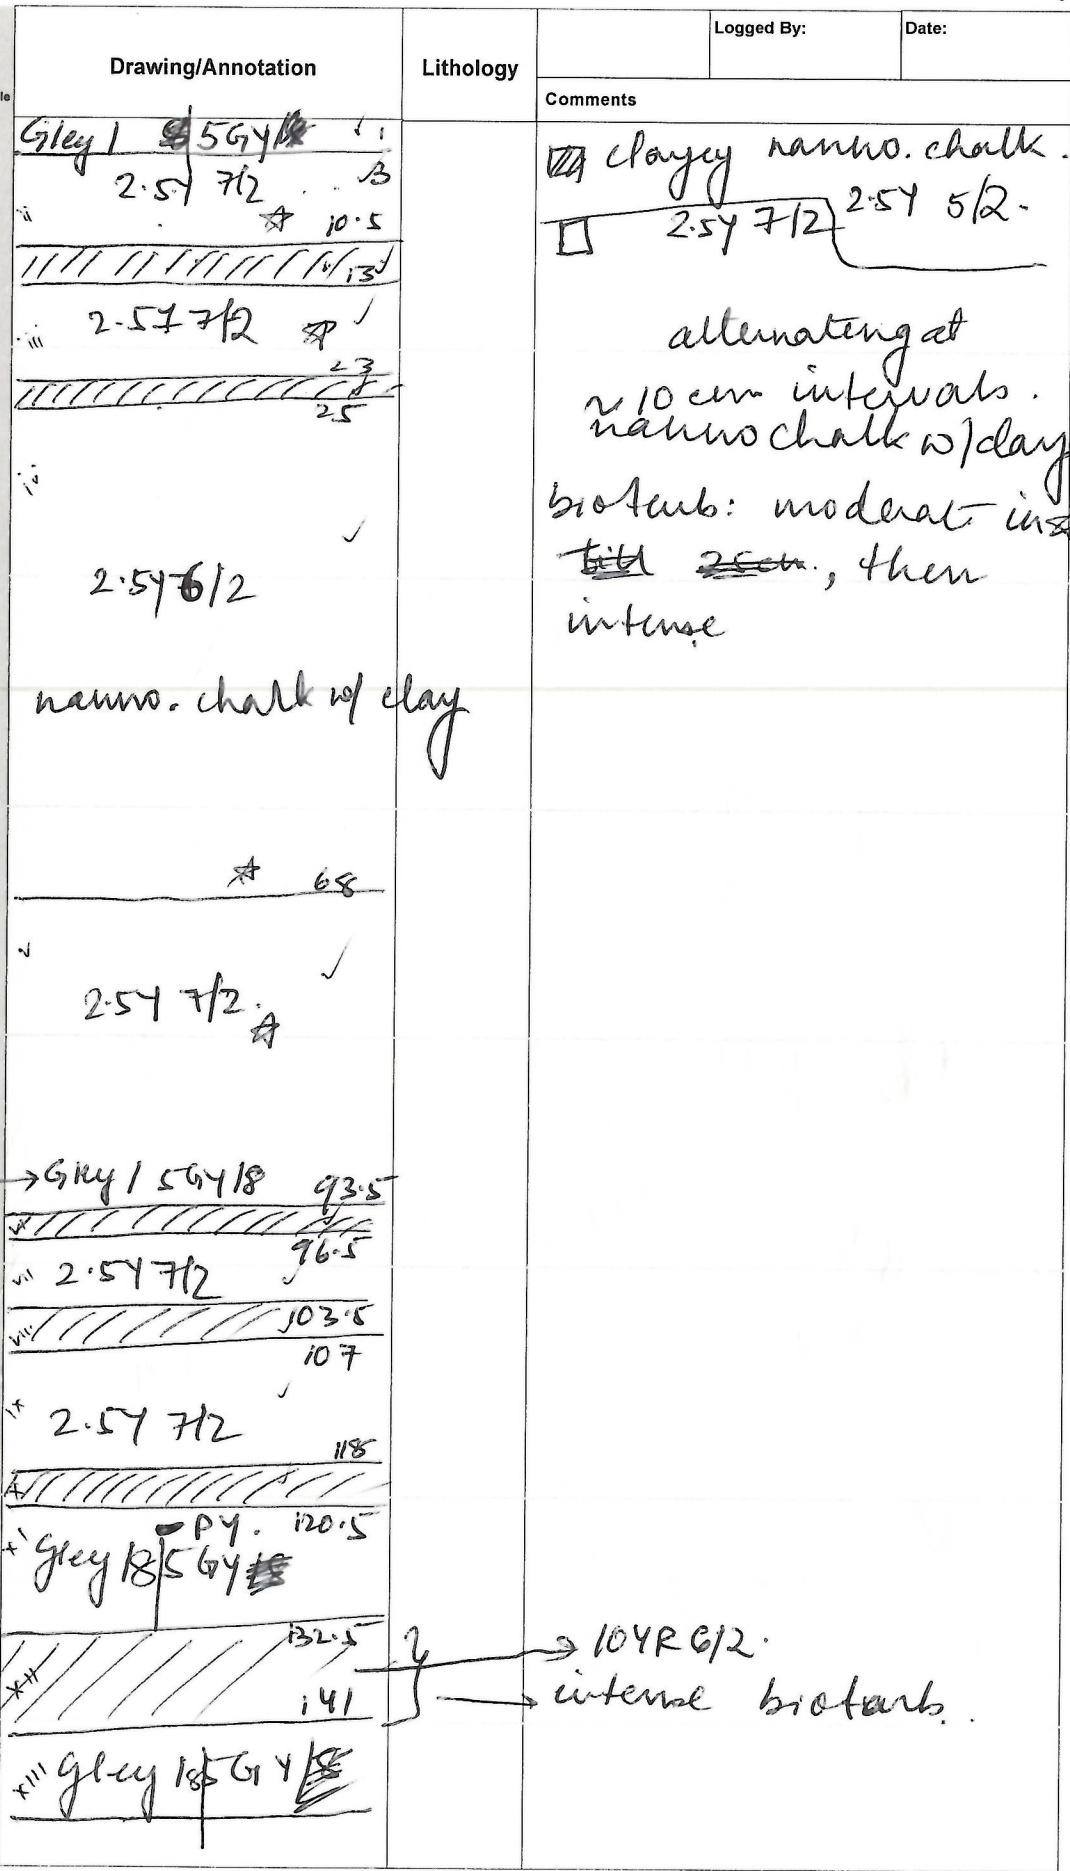 Logged By: Date:
Drawing/Annotation Lithology
Comments
Gley 1 5GY 1
2.5Y 7/2 3
ii 10.5
13
iii 2.5Y 7/2
23
25
iv
2.5Y 6/2
nanno. chalk w/ clay
68
v
2.5Y 7/2.
→Gley 1 5GY/8 93.5
vi
96.5
vii 2.5Y 7/2
viii 103.5
107
ix 2.5Y 7/2
118
x
PY. 120.5
xi Gley 1 8 5GY
132.5
xii
141
xiii gley 1 8 5GY
clayey nanno. chalk.
2.5Y 7/2 2.5Y 5/2.
alternating at
~10 cm intervals.
nanno chalk w/clay
bioturb: moderate in
till 25cm, then
intense
→ 10YR 6/2.
→ intense bioturb.